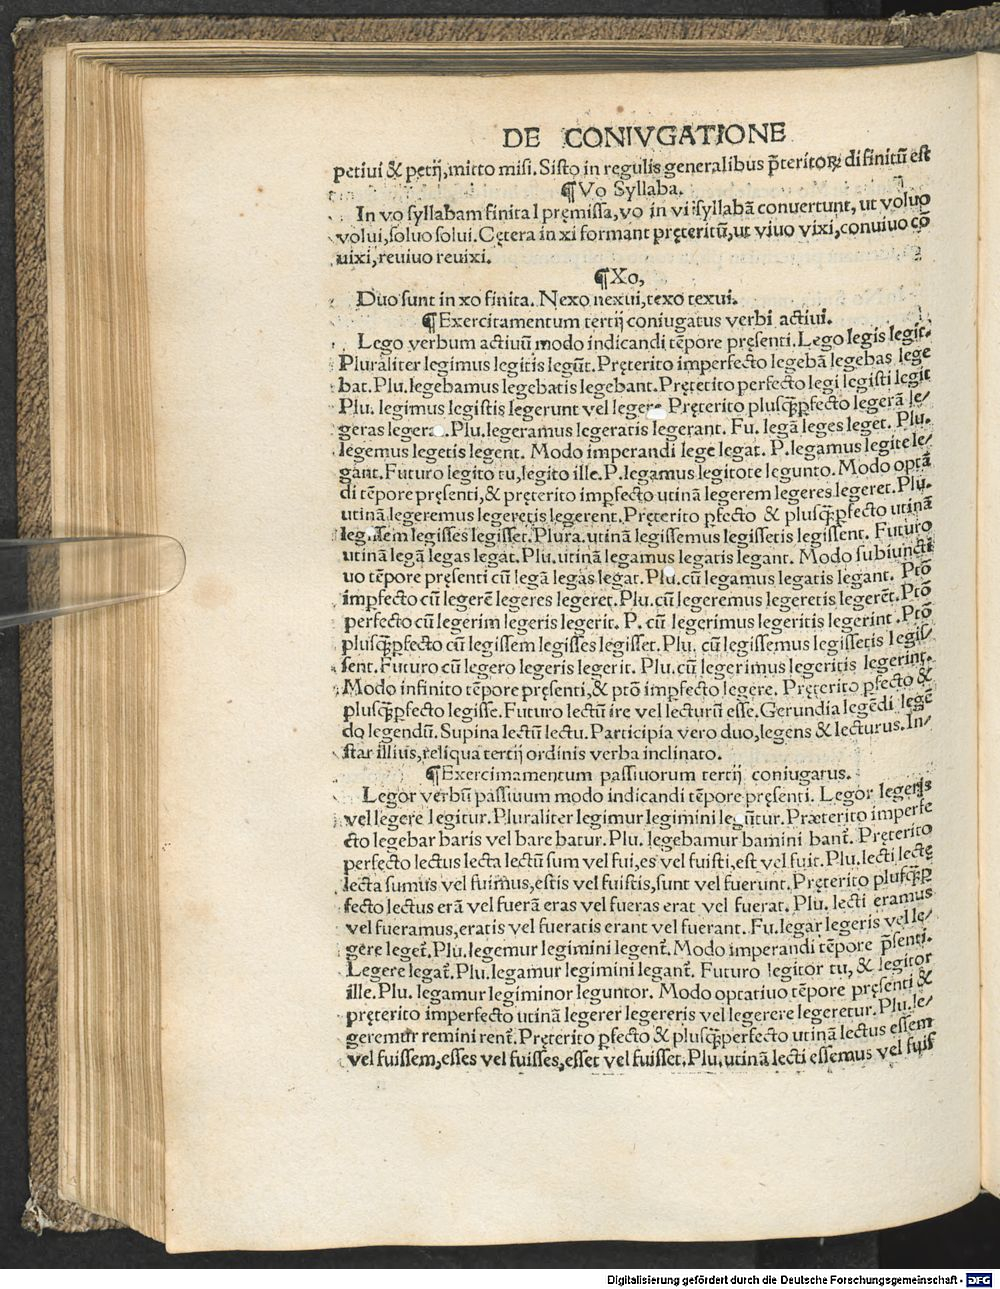 DE CONIVGATIONE
petiui & petij, mitto misi. Sisto in regulis generalibus p̃teritoꝝ difinitũ est
¶Vo Syllaba.
In vo syllabam finita l pręmissa, vo in vi syllabã conuertunt, ut voluo
volui, soluo solui. Cętera in xi formant pręteritũ, ut viuo vixi, conuiuo cõ
uixi, reuiuo reuixi.
¶Xo,
Duo sunt in xo finita. Nexo nexui, texo texui.
¶Exercitamentum tertij coniugatus verbi actiui.
Lego verbum actiuũ modo indicandi tẽpore pręsenti. Lego legis legit.
Pluraliter legimus legitis legũt. Pręterito imperfecto legebã legebas lege
bat. Plu. legebamus legebatis legebant. Pręterito perfecto legi legisti legit
Plu. legimus legistis legerunt vel legere Pręterito plusq̃ꝑfecto legerã le/
geras leger . Plu. legeramus legeratis legerant. Fu. legã leges leget. Plu.
legemus legetis legent. Modo imperandi lege legat. P. legamus legite le/
gant. Futuro legito tu, legito ille. P. legamus legitote legunto. Modo optã
di tẽpore pręsenti, & pręterito imꝑfecto utinã legerem legeres legeret. Plu.
utinã legeremus legeretis legerent. Pręterito ꝑfecto & plusq̃ꝑfecto utinã
leg sem legisses legisset. Plura. utinã legissemus legissetis legissent. Futuro
utinã legã legas legat. Plu. utinã legamus legatis legant. Modo subiuncti
uo tẽpore pręsenti cũ legã legas legat. Plu. cũ legamus legatis legant. Ptõ
imꝑfecto cũ legerẽ legeres legeret. Plu. cũ legeremus legeretis legerẽt. Ptõ
perfecto cũ legerim legeris legerit. P. cũ legerimus legeritis legerint. Ptõ
plusq̃ꝑfecto cũ legissem legisses legisset. Plu. cũ legissemus legissetis legis/
sent. Futuro cũ legero legeris legerit. Plu. cũ legerimus legeritis legerint.
Modo infinito tẽpore pręsenti, & ptõ imꝑfecto legere. Pręterito ꝑfecto &
plusq̃ꝑfecto legisse. Futuro lectũ ire vel lecturũ esse. Gerundia legẽdi legẽ
do legendũ. Supina lectũ lectu. Participia vero duo, legens & lecturus. In/
star illius, reliqua tertij ordinis verba inclinato.
¶Exercimamentum passiuorum tertij coniugatus.
Legor verbũ passiuum modo indicandi tẽpore pręsenti. Legor legeris
vel legere legitur. Pluraliter legimur legimini legũtur. Præterito imperfe
cto legebar baris vel bare batur. Plu. legebamur bamini bant᷑. Pręterito
perfecto lectus lecta lectũ sum vel fui, es vel fuisti, est vel fuit. Plu. lecti lectę
lecta sumus vel fuimus, estis vel fuistis, sunt vel fuerunt. Pręterito plusq̃ꝑ
fecto lectus erã vel fuerã eras vel fueras erat vel fuerat. Plu. lecti eramus
vel fueramus, eratis vel fueratis erant vel fuerant. Fu. legar legeris vel le/
gere leget᷑. Plu. legemur legimini legent᷑. Modo imperandi tẽpore p̃senti.
Legere legat᷑. Plu. legamur legimini legant᷑. Futuro legitor tu, & legitor
ille. Plu. legamur legiminor leguntor. Modo optatiuo tẽpore pręsenti &
pręterito imperfecto utinã legerer legereris vel legerere legeretur. Plu. le/
geremur remini rent᷑. Pręterito ꝑfecto & plusq̃perfecto utinã lectus essem
vel fuissem, esses vel fuisses, esset vel fuisset. Plu. utinã lecti essemus vel fuis
Digitalisierung gefördert durch die Deutsche Forschungsgemeinschaft - DFG